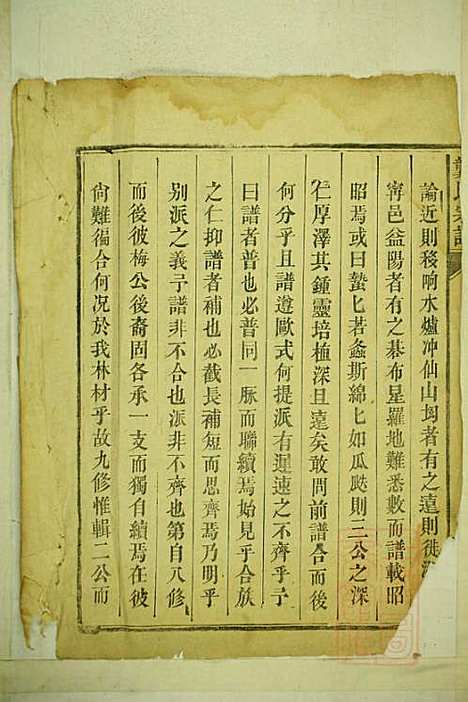 論近則移响水爐冲仙山坳者有之遠則徙
寗邑益陽者有之碁布星羅地難悉數而譜載昭
昭焉或曰蟄匕若螽斯綿匕如瓜瓞則三公之深
仁厚澤其鍾靈培植深且遠矣敢問前譜合而後
何分乎且譜遵歐式何提派有遲速之不齊乎予
曰譜者普也必普同一脈而聯續焉始見乎合族
之仁抑譜者補也必截長補短而思齊焉乃明乎
别派之義予譜非不合也派非不齊也第自八修
而後彼梅公後裔固各承一支而獨自續焉在彼
尙難徧合何况於我林材乎故九修惟輯二公而